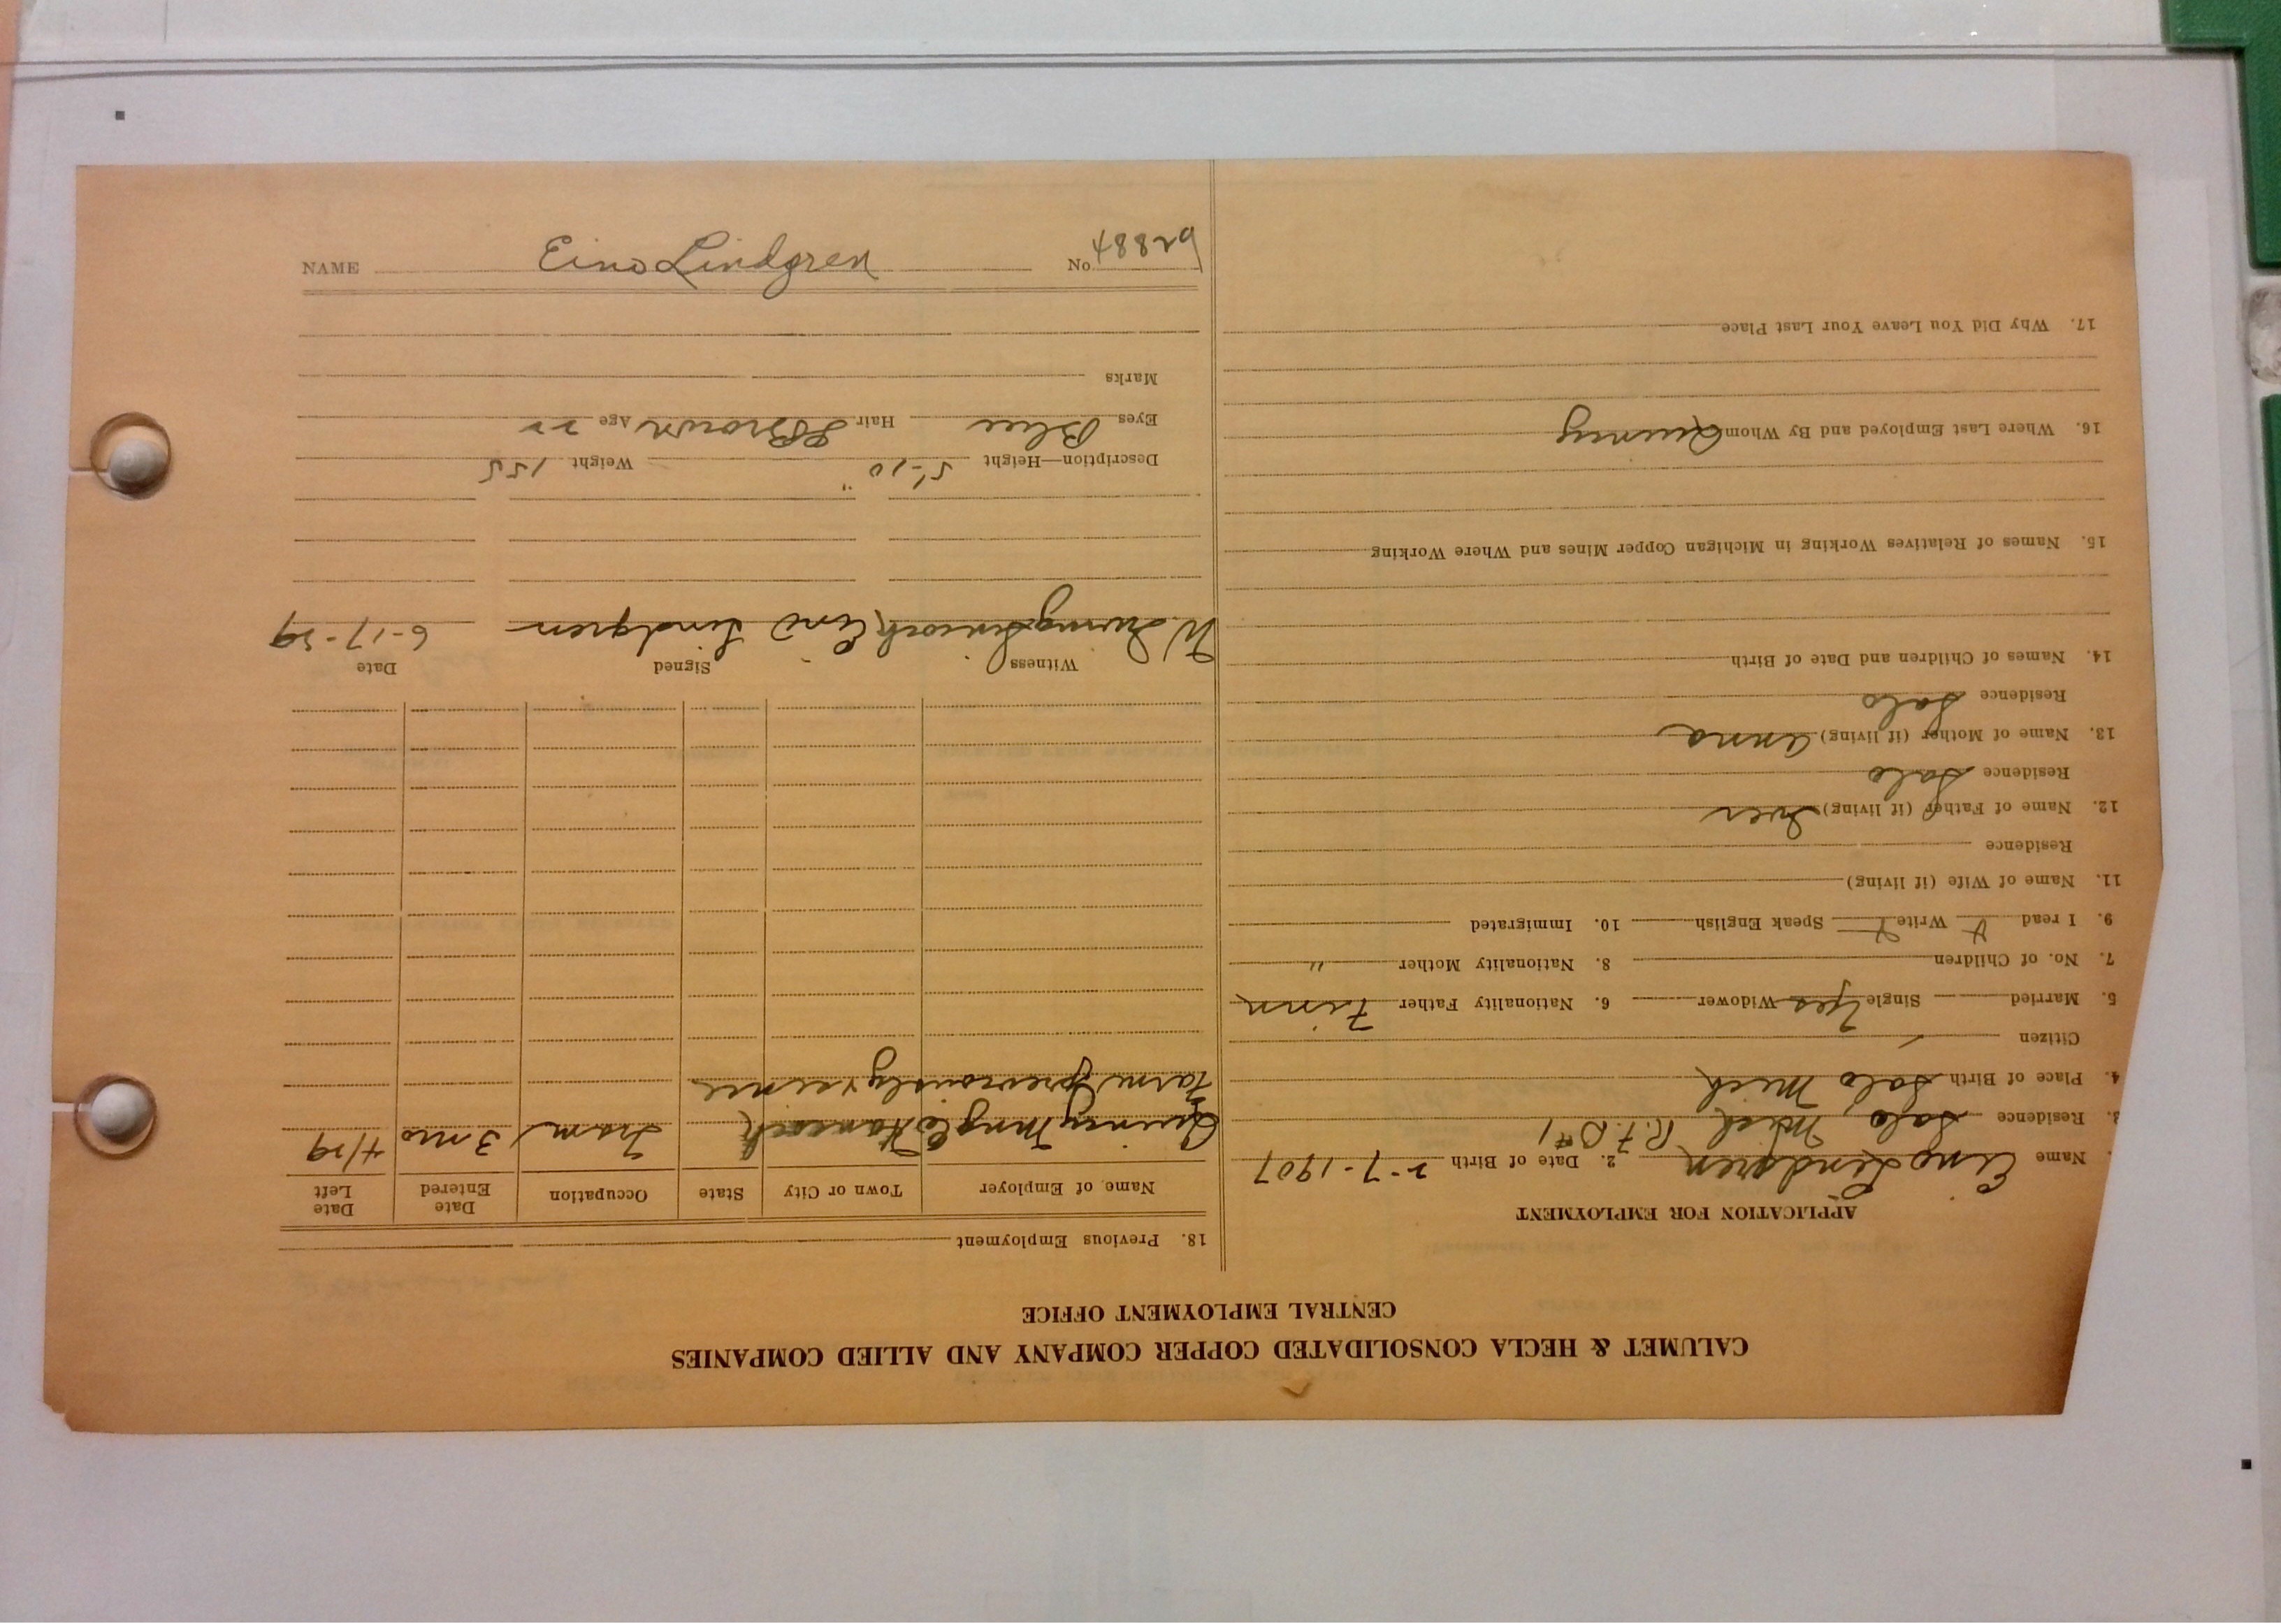 CALUMET & HECLA CONSOLIDATED COPPER COMPANY AND ALLIED COMPANIES
CENTRAL EMPLOYMENT OFFICE
APPLICATION FOR EMPLOYMENT
Name Eino Lindgren 2. Date of Birth 2-7-1907
Residence Salo, Mich R.F.D #1
4. Place of Birth Salo Mich
Citizen
5. Married Single Yes Widower 6. Nationality Father Finn
7. No. of Children 8. Nationality Mother "
9. I read Write Speak English 10. Immigrated
11. Name of Wife (if living)
Residence
12. Name of Father (if living) Iver
Residence Salo
13. Name of Mother (if living) Anna
Residence Salo
14. Names of Children and Date of Birth
15. Names of Relatives Working in Michigan Copper Mines and Where Working
16. Where Last Employed and By Whom Quincy
17. Why Did You Leave Your Last Place
18. Previous Employment
Name of Employer Town or City State Occupation Date Entered Date Left
Quincy Mng Co Hancock Tram 3 mo 4/29
Farm previously
Witness Signed Date
Eino Lindgren 6-17-29
Description—Height 5'-10" Weight 155
Eyes Blue Hair L Brown Age 22
Marks
NAME Eino Lindgren No. 48829